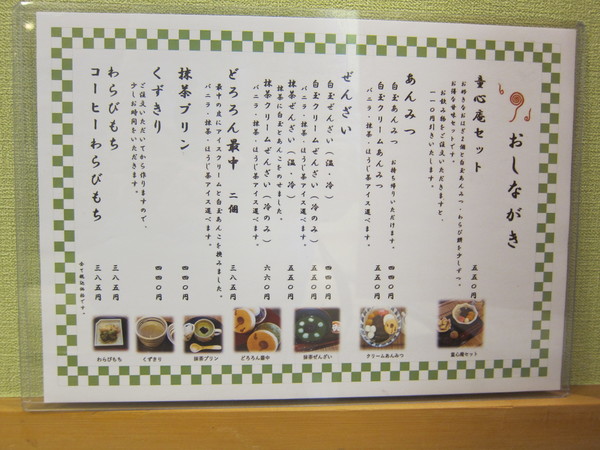 おしながき
童心庵セット 五五〇円
お好きなおはぎ二個と白玉あんみつ・わらび餅を少しずつ。
お得な甘味セットです。
お飲み物をご注文いただきますと、
一一〇円引きいたします。
あんみつ
白玉あんみつ お持ち帰りいただけます。 四四〇円
白玉クリームあんみつ 五五〇円
バニラ・抹茶・ほうじ茶アイス選べます。
ぜんざい
白玉ぜんざい（温・冷） 四四〇円
白玉クリームぜんざい（冷のみ） 五五〇円
バニラ・抹茶・ほうじ茶アイス選べます。
抹茶ぜんざい（温・冷） 五五〇円
抹茶に白玉とあんこをのせました。
抹茶クリームぜんざい（冷のみ） 六六〇円
バニラ・抹茶・ほうじ茶アイス選べます。
どろろん最中 二個 三八五円
最中の皮にアイスクリームと白玉あんこを挟みました。
バニラ・抹茶・ほうじ茶アイス選べます。
抹茶プリン 四四〇円
くずきり 四四〇円
ご注文いただいてから作りますので、
少しお時間をいただきます。
わらびもち 三八五円
コーヒーわらびもち 三八五円
全て税込価格です。
童心庵セット
クリームあんみつ
抹茶ぜんざい
どろろん最中
抹茶プリン
くずきり
わらびもち